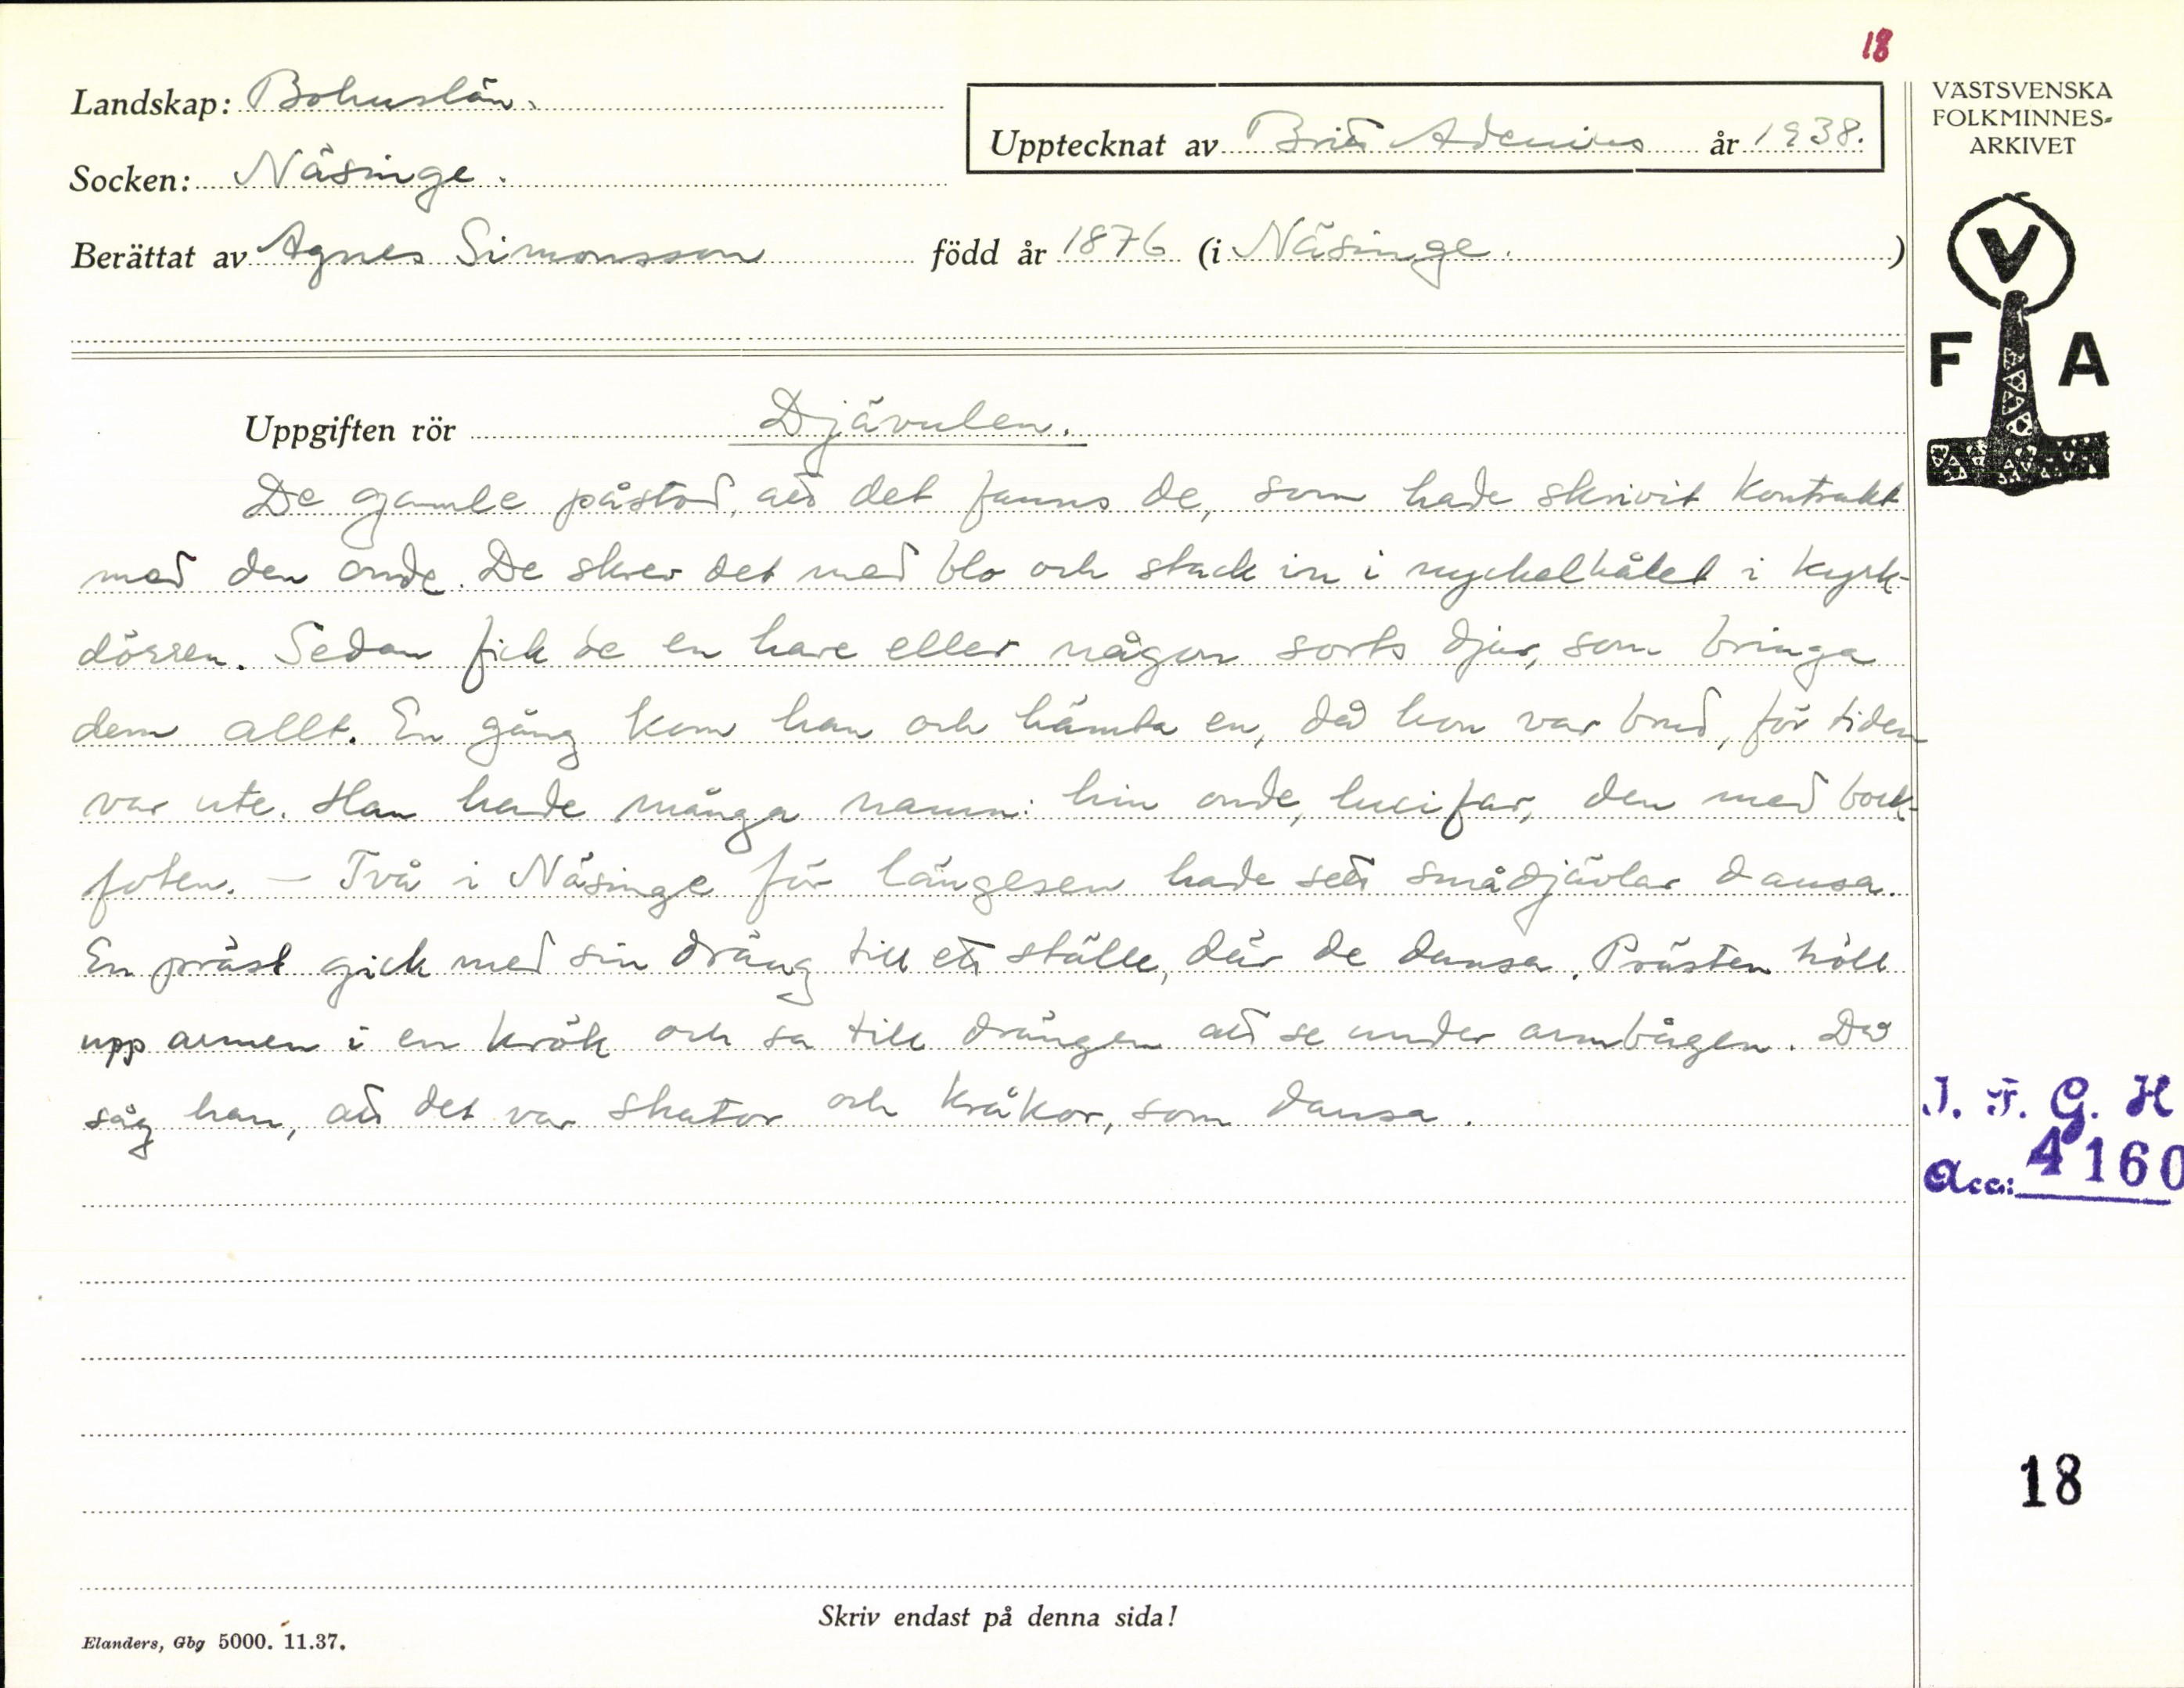 18
Landskap: Bohuslän.
Upptecknat av Britt Adenius år 1938.
Socken: Näsinge.
Berättat av Agnes Simonsson född år 1876 (i Näsinge.)
VÄSTSVENSKA
FOLKMINNES-
ARKIVET
V
F A
Uppgiften rör Djävulen.
De gamle påstod, att det fanns de, som hade skrivit kontrakt
med den onde. De skrev det med blo och stack in i nyckelhålet i kyrk-
dörren. Sedan fick de en hare eller någon sorts djur, som bringa
dem allt. En gång kom han och hämta en, då hon var brud, för tiden
var ute. Han hade många namn: hin onde, lucifar, den med bock-
foten. – Två i Näsinge för längesen hade sett smådjävlar dansa.
En präst gick med sin dräng till ett ställe, där de dansa. Prästen höll
upp armen i en krök och sa till drängen att se under armbågen. Då
såg han, att det var skator och kråkor, som dansa.
I. F. G. H
Acc: 4160
18
Skriv endast på denna sida!
Elanders, Gbg 5000. 11.37.